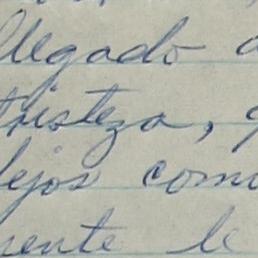 llegado a
tristeza, q
lejos como
mente le